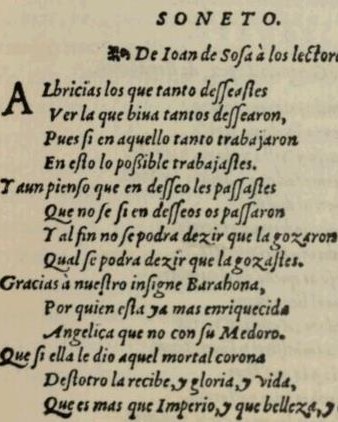 SONETO.
De Ioan de Sosa à los lector
ALbricias los que tanto desseastes
Ver la que biua tantos dessearon,
Pues si en aquello tanto trabajaron
En esto lo possible trabajastes.
Y aun pienso que en desseo les passastes
Que no se si en desseos os passaron
Y al fin no se podra dezir que la gozaron
Qual se podra dezir que la gozastes.
Gracias à nuestro insigne Barahona,
Por quien esta ya mas enriquecida
Angelica que no con su Medoro.
Que si ella le dio aquel mortal corona
Destotro la recibe, y gloria, y vida,
Que es mas que Imperio, y que belleza, y